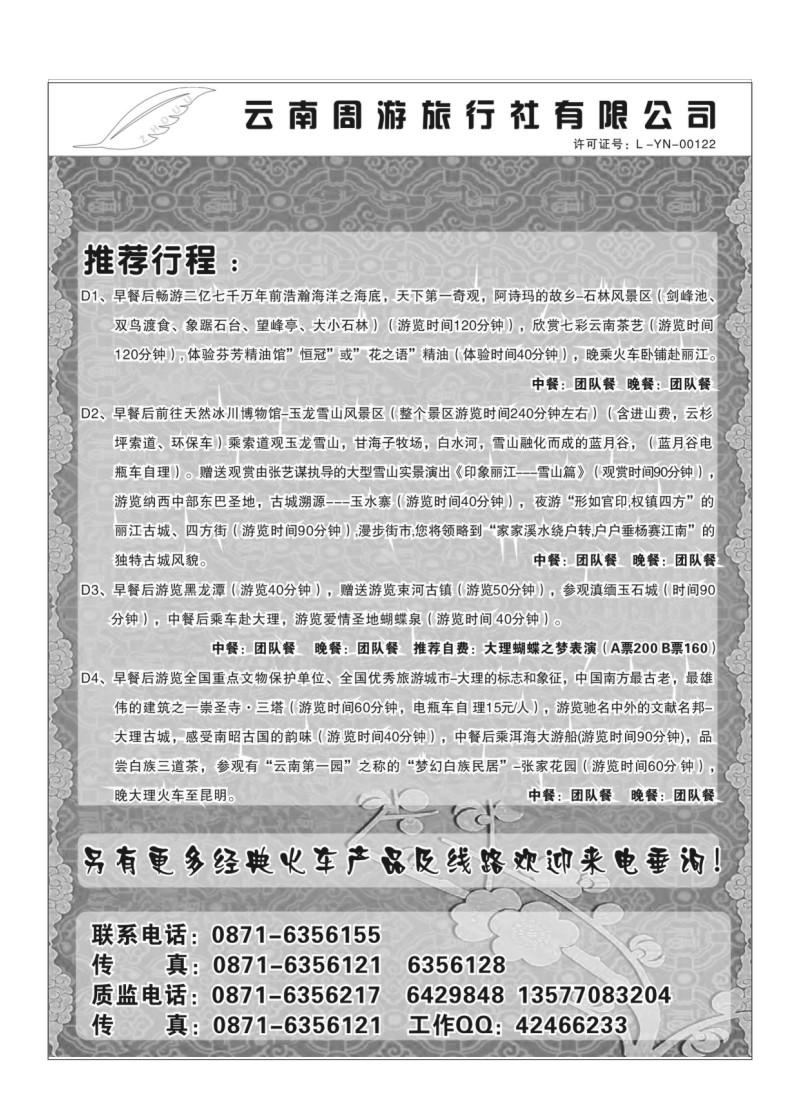 ZHOUU
云南周游旅行社有限公司
许可证号：L-YN-00122
推荐行程：
D1、早餐后畅游二亿七千万年前浩瀚海洋之海底，天下第一奇观，阿诗玛的故乡-石林风景区（剑峰池、
双鸟渡食、象踞石台、望峰亭、大小石林）（游览时间120分钟），欣赏七彩云南茶艺（游览时间
120分钟）,体验芬芳精油馆”恒冠”或”花之语”精油（体验时间40分钟），晚乘火车卧铺赴丽江。
中餐：团队餐 晚餐：团队餐
D2、早餐后前往天然冰川博物馆-玉龙雪山风景区（整个景区游览时间240分钟左右）（含进山费，云杉
坪索道、环保车）乘索道观玉龙雪山，甘海子牧场，白水河，雪山融化而成的蓝月谷，（蓝月谷电
瓶车自理）。赠送观赏由张艺谋执导的大型雪山实景演出《印象丽江---雪山篇》（观赏时间90分钟），
游览纳西中部东巴圣地，古城溯源---玉水寨（游览时间40分钟），夜游“形如官印,权镇四方”的
丽江古城、四方街（游览时间90分钟）,漫步街市,您将领略到“家家溪水绕户转,户户垂杨赛江南”的
独特古城风貌。 中餐：团队餐 晚餐：团队餐
D3、早餐后游览黑龙潭（游览40分钟），赠送游览束河古镇（游览50分钟），参观滇缅玉石城（时间90
分钟），中餐后乘车赴大理，游览爱情圣地蝴蝶泉（游览时间 40分钟）。
中餐：团队餐 晚餐：团队餐 推荐自费：大理蝴蝶之梦表演（A票200 B票160）
D4、早餐后游览全国重点文物保护单位、全国优秀旅游城市-大理的标志和象征，中国南方最古老，最雄
伟的建筑之一崇圣寺·三塔（游览时间60分钟，电瓶车自理15元/人），游览驰名中外的文献名邦-
大理古城，感受南昭古国的韵味（游览时间40分钟），中餐后乘洱海大游船(游览时间90分钟)，品
尝白族三道茶，参观有“云南第一园”之称的“梦幻白族民居”-张家花园（游览时间60分钟），
晚大理火车至昆明。 中餐：团队餐 晚餐：团队餐
另有更多经典火车产品及线路欢迎来电垂询！
联系电话：0871-6356155
传 真：0871-6356121 6356128
质监电话：0871-6356217 6429848 13577083204
传 真：0871-6356121 工作QQ：42466233